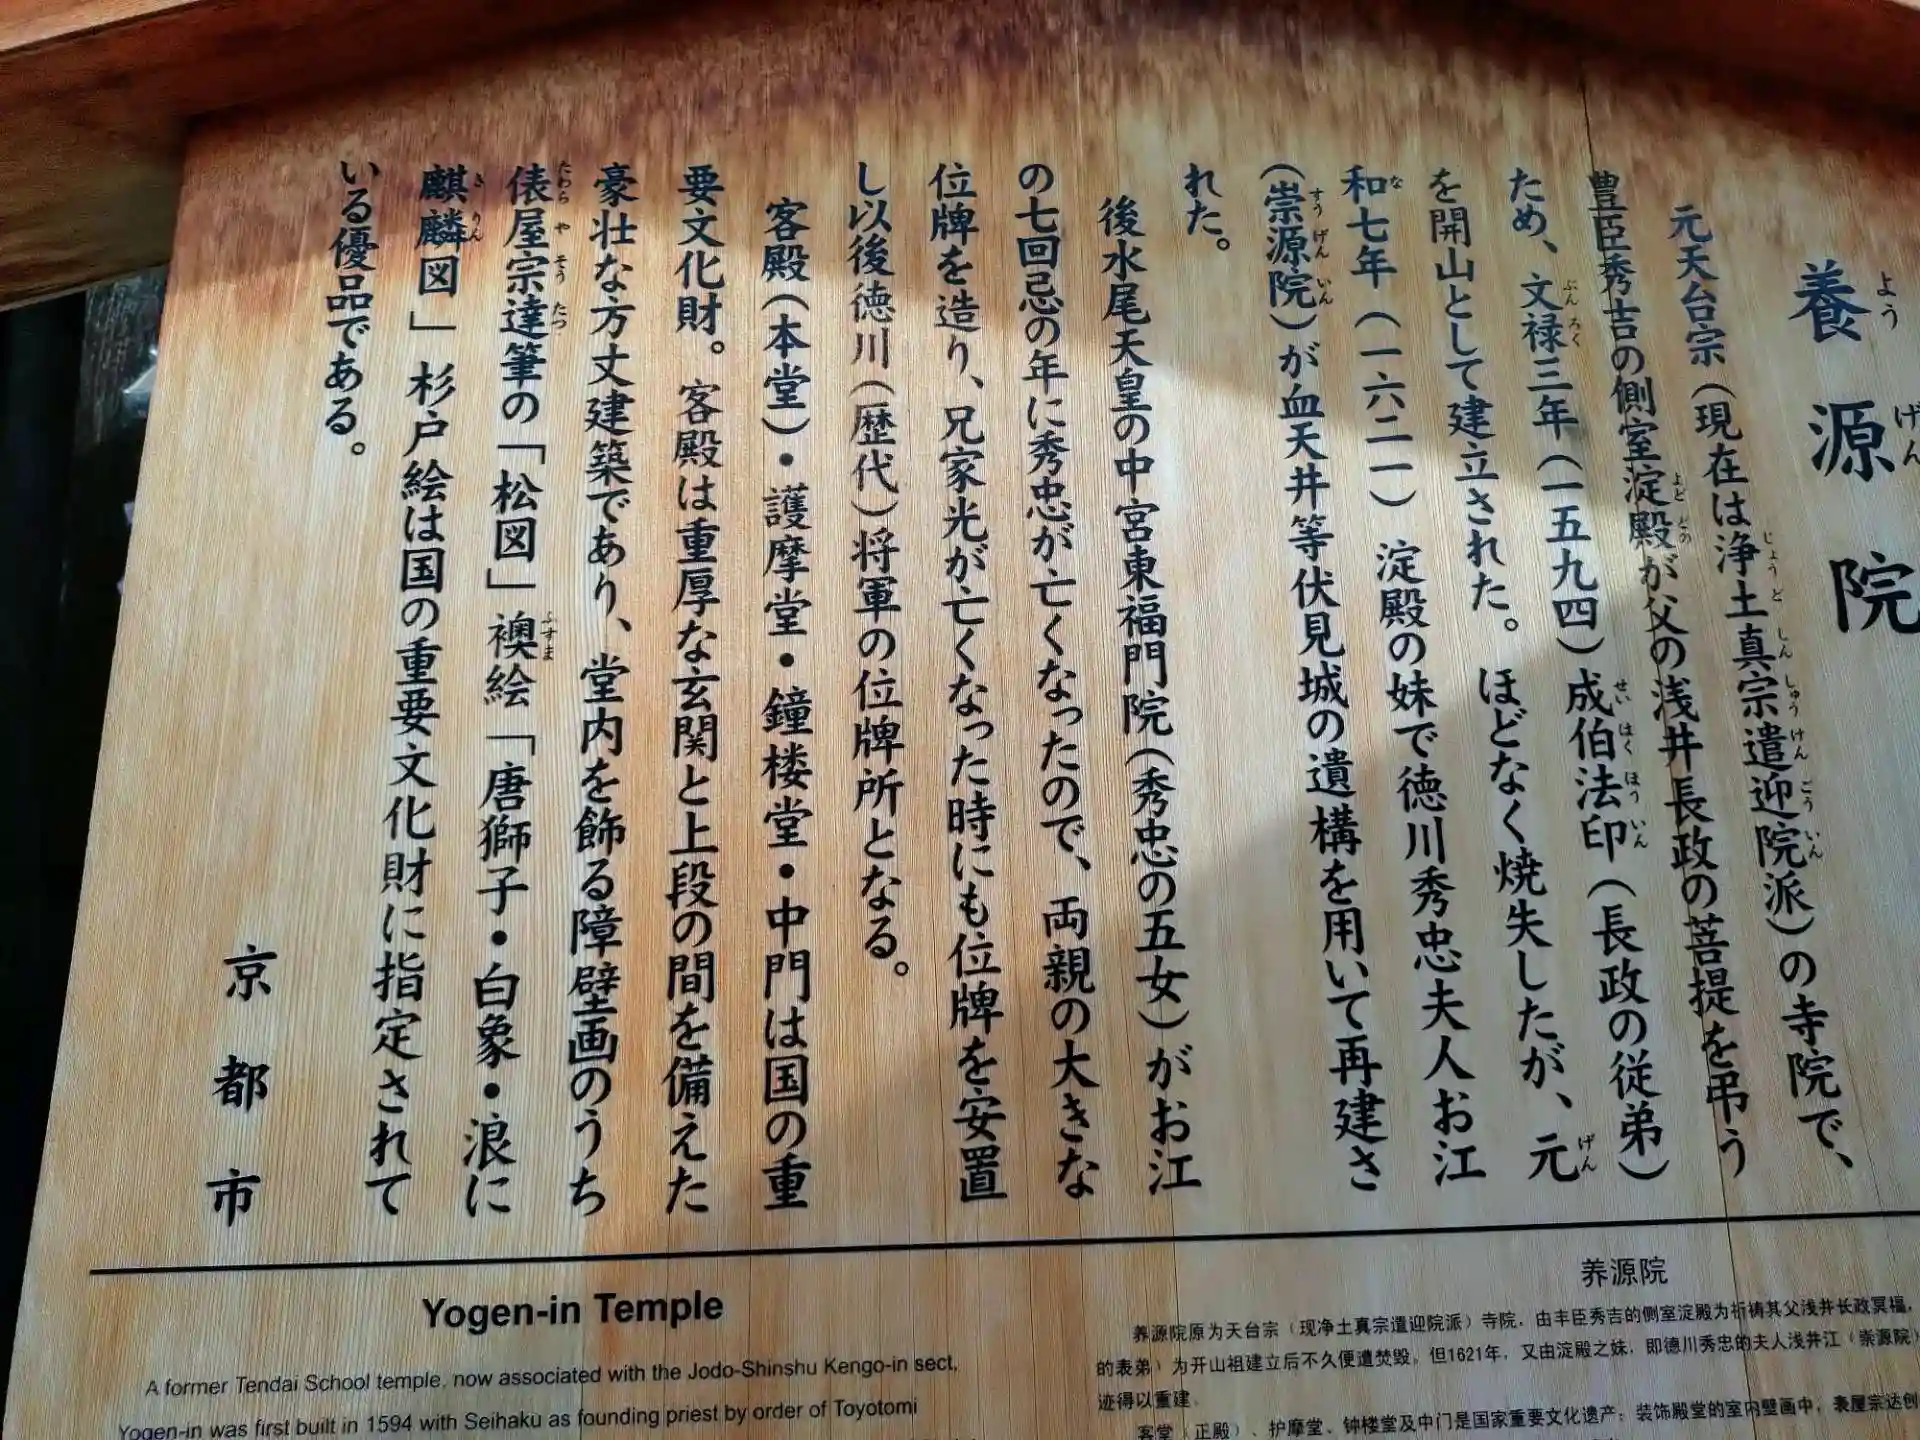 養源院
よう げん
元天台宗（現在は浄土真宗遣迎院派）の寺院で、
じょう ど しん しゅう けん ごう いん
豊臣秀吉の側室淀殿が父の浅井長政の菩提を弔う
よど どの
ため、文禄三年（一五九四）成伯法印（長政の従弟）
ぶん ろく せい はく ほう いん
を開山として建立された。ほどなく焼失したが、元
げん
和七年（一六二一）淀殿の妹で徳川秀忠夫人お江
な
（崇源院）が血天井等伏見城の遺構を用いて再建さ
すう げん いん
れた。
後水尾天皇の中宮東福門院（秀忠の五女）がお江
の七回忌の年に秀忠が亡くなったので、両親の大きな
位牌を造り、兄家光が亡くなった時にも位牌を安置
し以後徳川（歴代）将軍の位牌所となる。
客殿（本堂）・護摩堂・鐘楼堂・中門は国の重
要文化財。客殿は重厚な玄関と上段の間を備えた
豪壮な方丈建築であり、堂内を飾る障壁画のうち
俵屋宗達筆の「松図」襖絵「唐獅子・白象・浪に
たわら や そう たつ ふすま
麒麟図」杉戸絵は国の重要文化財に指定されて
き りん
いる優品である。
京都市
Yogen-in Temple
A former Tendai School temple, now associated with the Jodo-Shinshu Kengo-in sect,
Yogen-in was first built in 1594 with Seihaku as founding priest by order of Toyotomi
养源院
养源院原为天台宗（现净土真宗遣迎院派）寺院，由丰臣秀吉的侧室淀殿为祈祷其父浅井长政冥福，
的表弟）为开山祖建立后不久便遭焚毁。但1621年，又由淀殿之妹，即德川秀忠的夫人浅井江（崇源院）
迹得以重建。
客堂（正殿）、护摩堂、钟楼堂及中门是国家重要文化遗产；装饰殿堂的室内壁画中，表屋宗达创